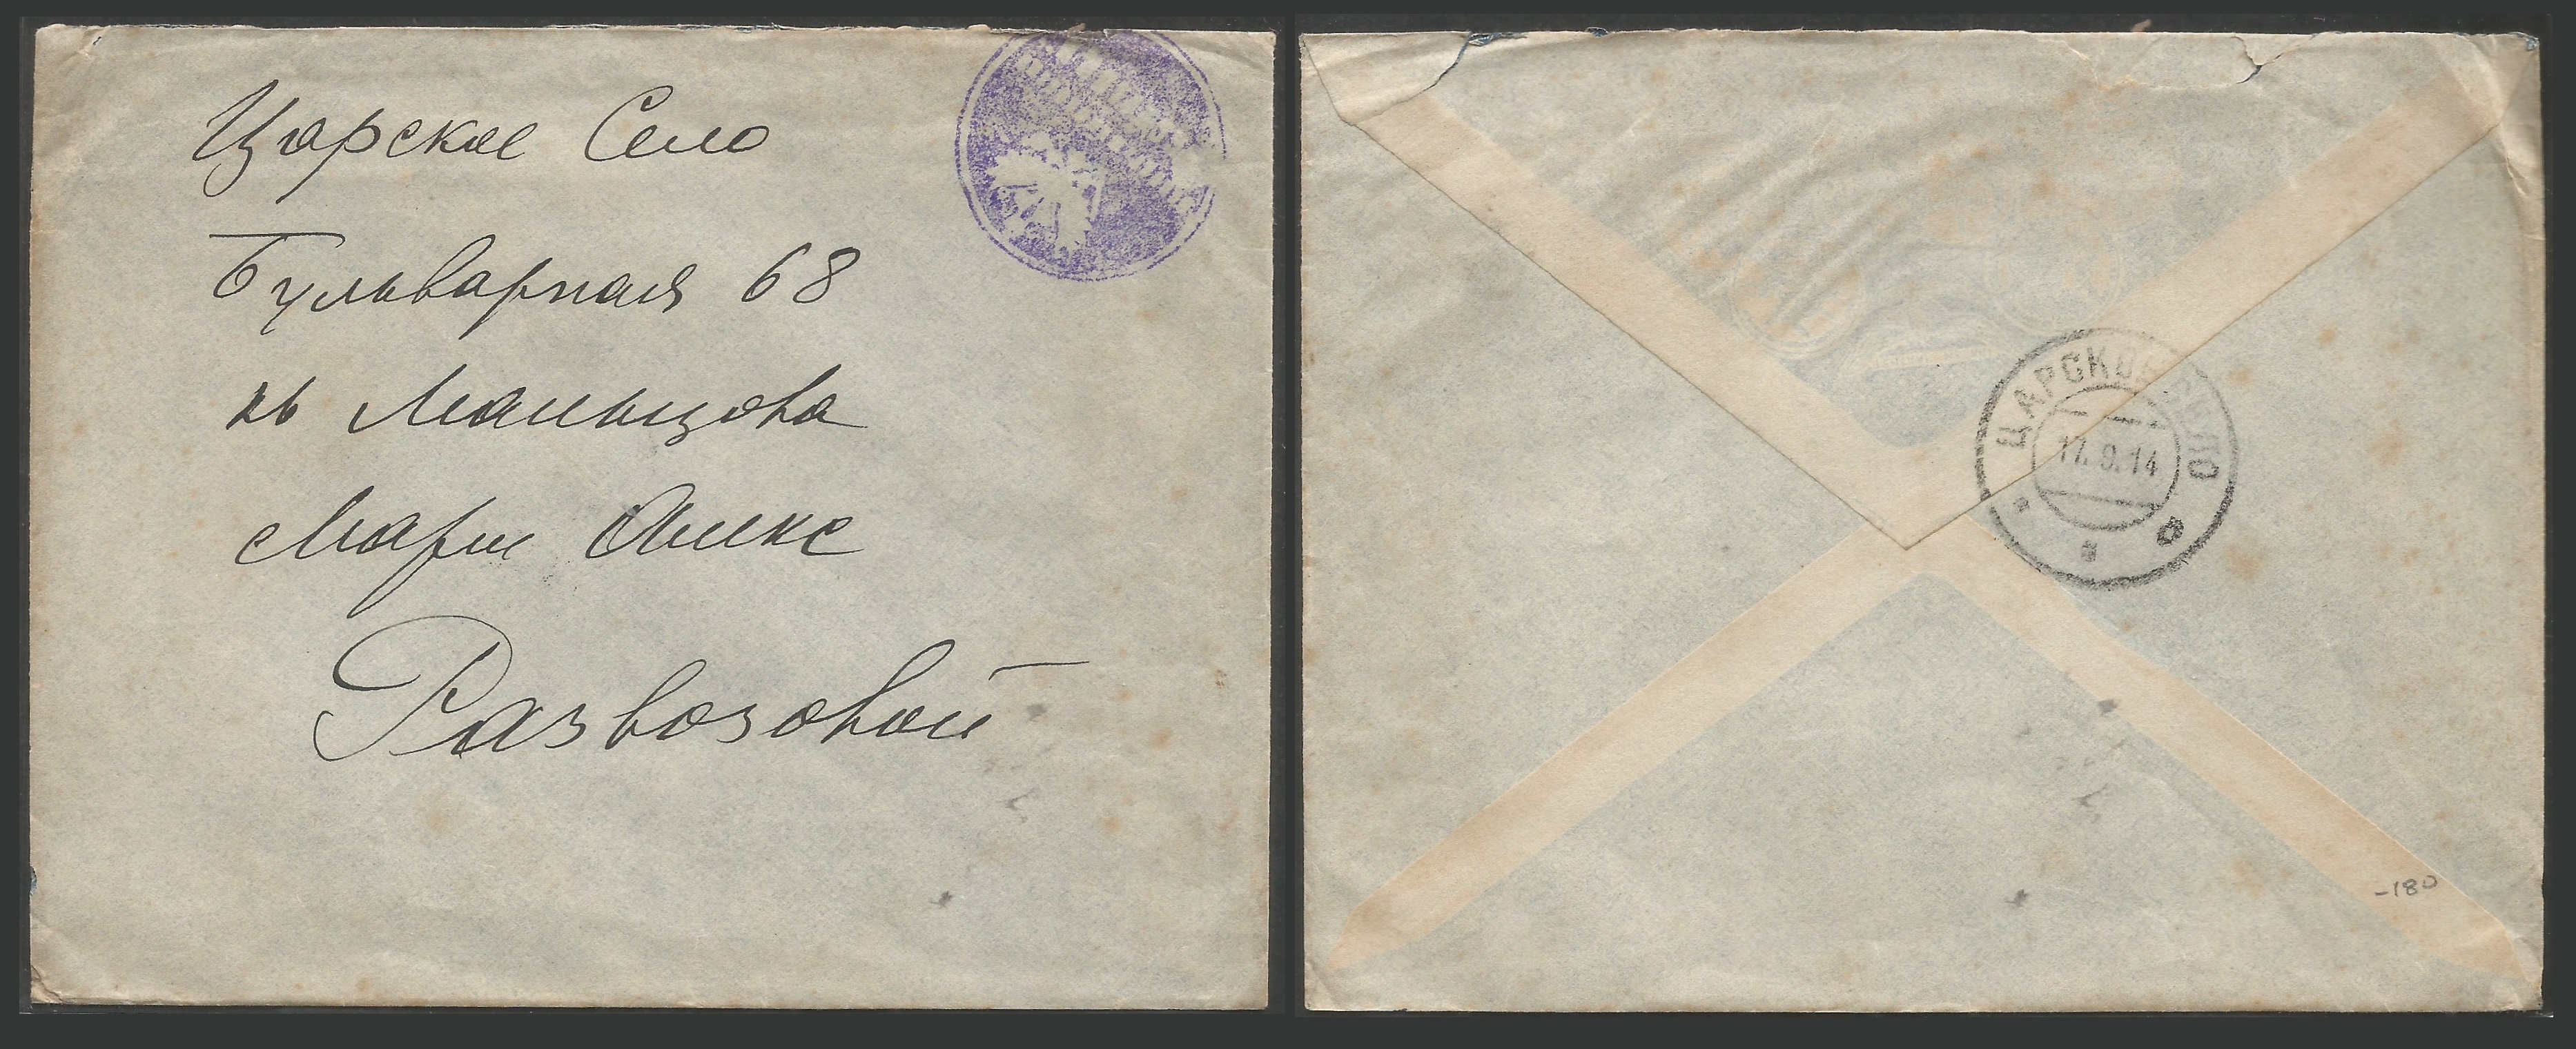 Царское Село
Бульварная 68
кв Мальцова
Марiи Алекс
Развозовой
ЦАРСКОЕ СЕЛО
17.9.14
-180